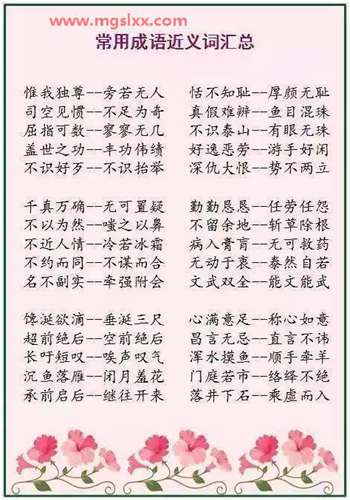 www.mgslxx.com
常用成语近义词汇总
惟我独尊--旁若无人 恬不知耻--厚颜无耻
司空见惯--不足为奇 真假难辨--鱼目混珠
屈指可数--寥寥无几 不识泰山--有眼无珠
盖世之功--丰功伟绩 好逸恶劳--游手好闲
不识好歹--不识抬举 深仇大恨--势不两立
千真万确--无可置疑 勤勤恳恳--任劳任怨
不以为然--嗤之以鼻 不留余地--斩草除根
不近人情--冷若冰霜 病入膏肓--无可救药
不约而同--不谋而合 无动于衷--泰然自若
名不副实--牵强附会 文武双全--能文能武
馋涎欲滴--垂涎三尺 心满意足--称心如意
超前绝后--空前绝后 昌言无忌--直言不讳
长吁短叹--唉声叹气 浑水摸鱼--顺手牵羊
沉鱼落雁--闭月羞花 门庭若市--络绎不绝
承前启后--继往开来 落井下石--乘虚而入